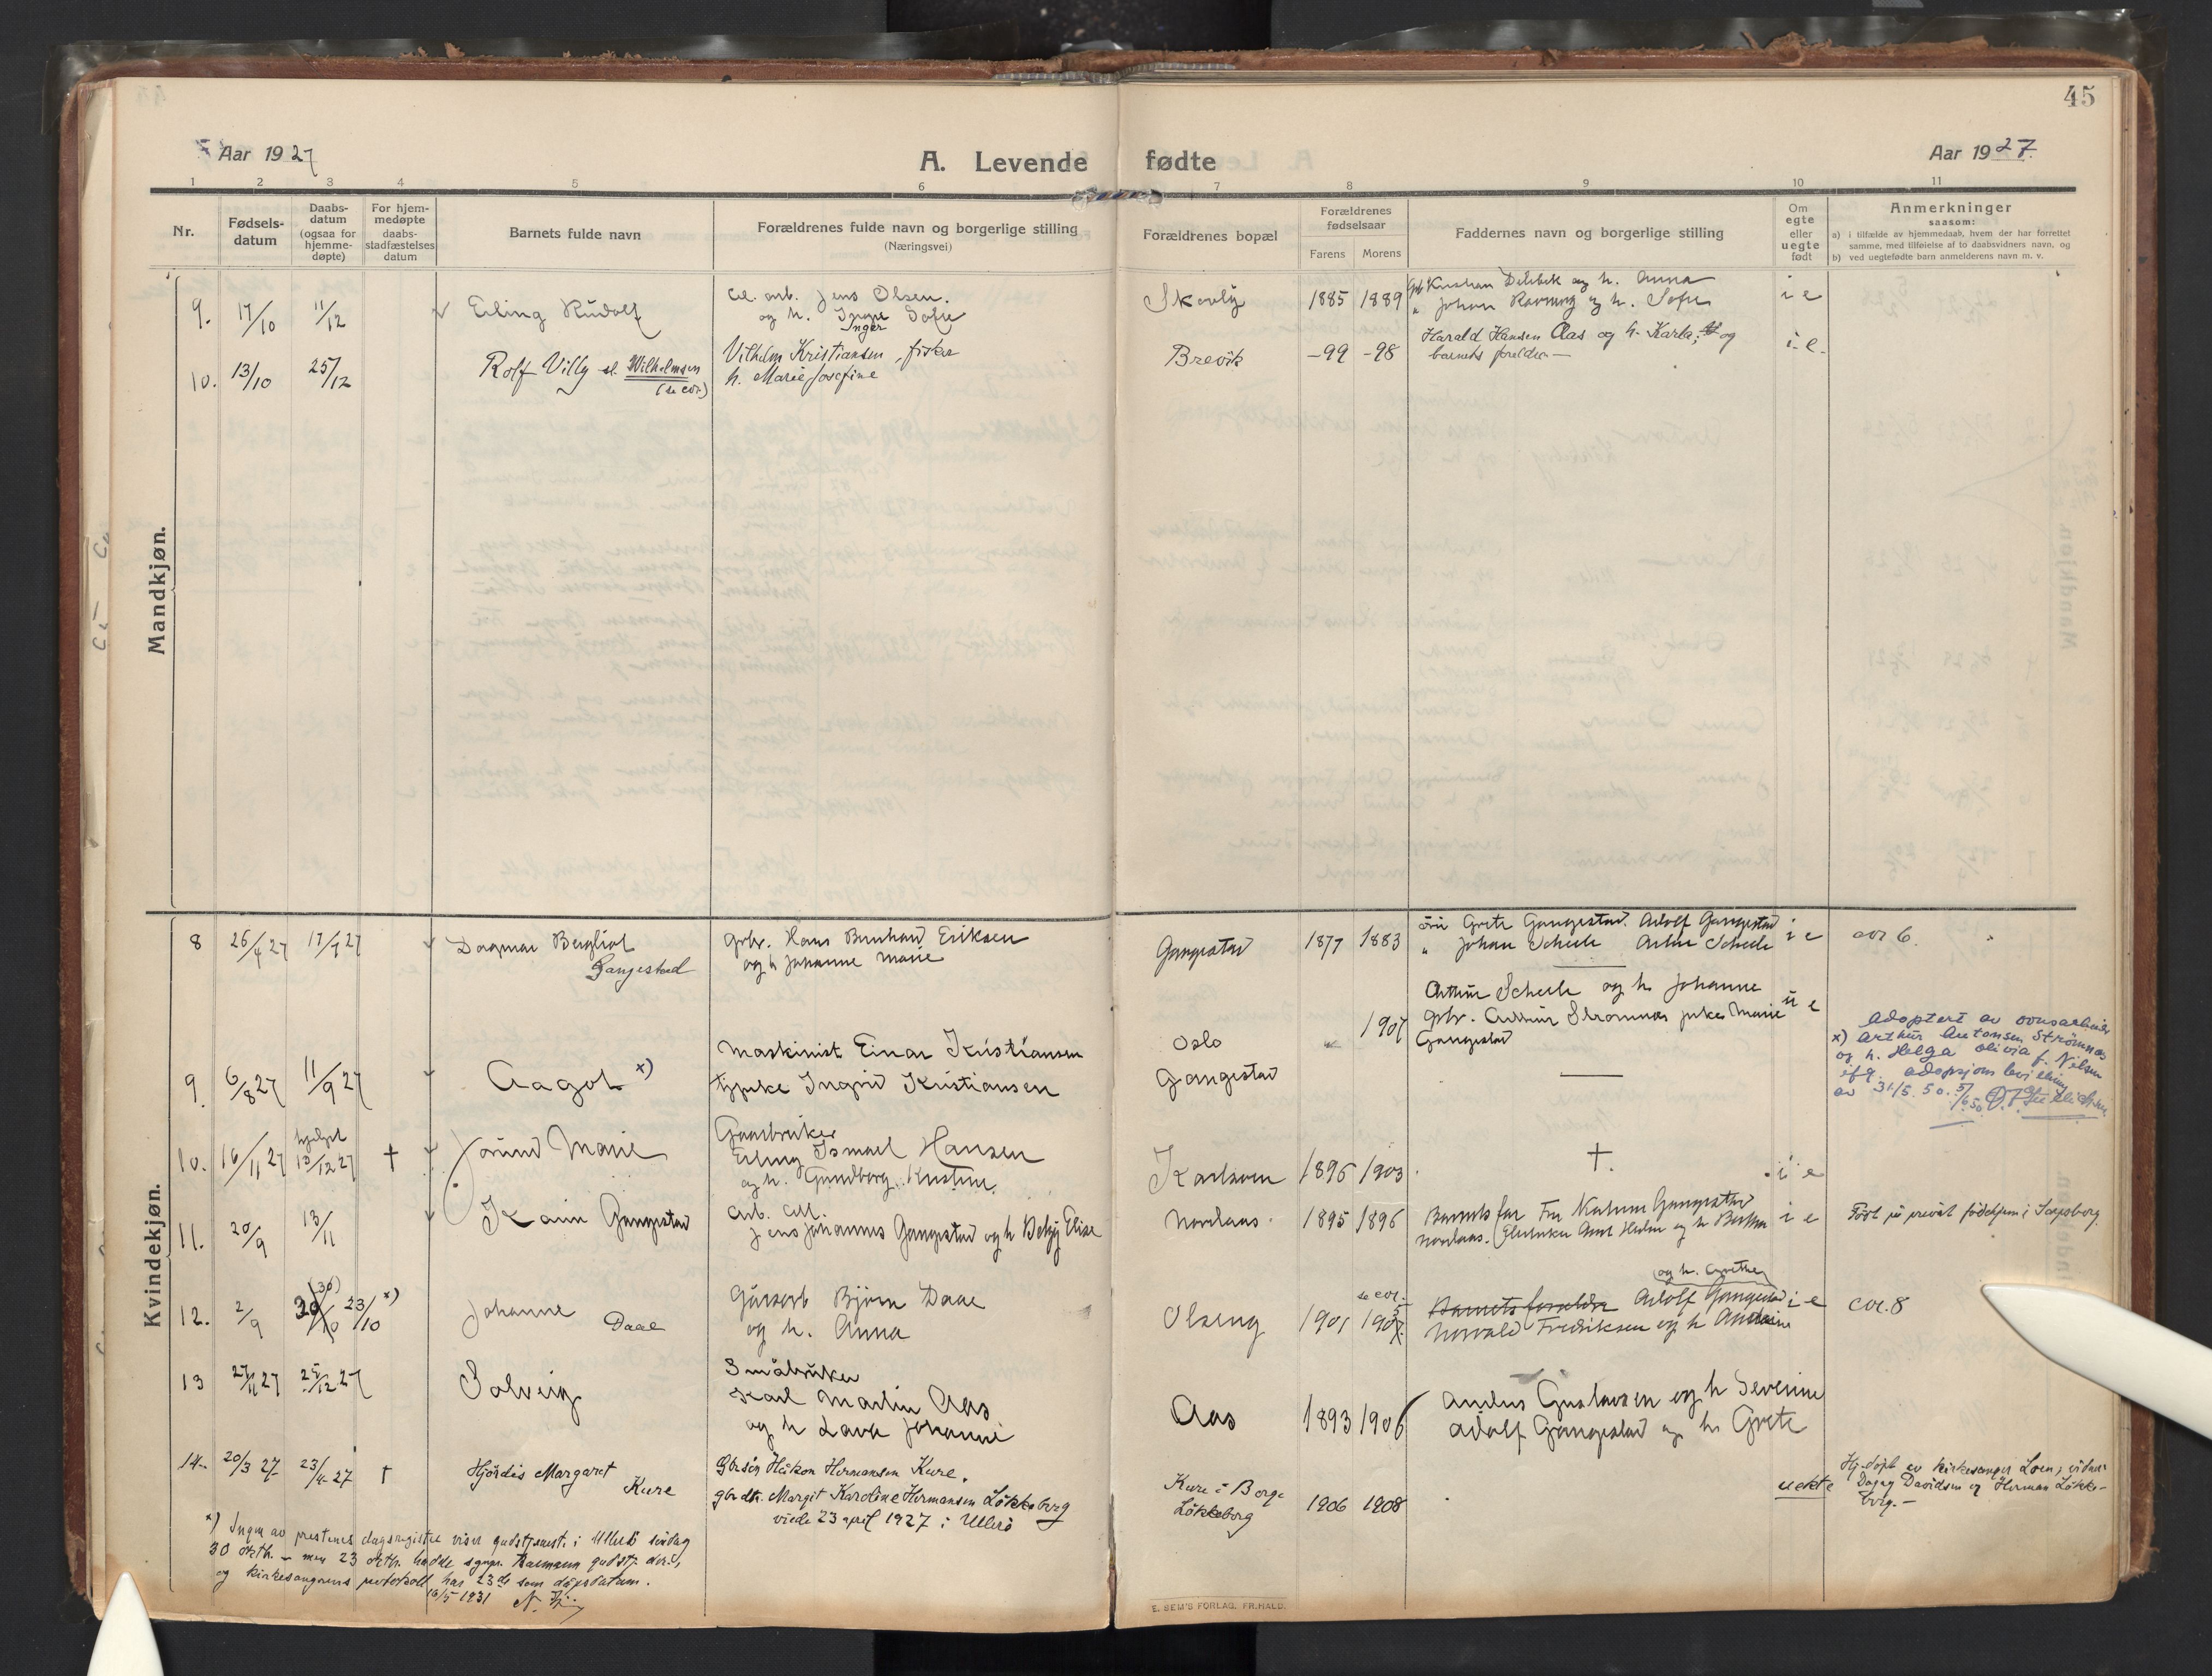 45
Aar 1927
A. Levende fødte
Aar 1927.
1 2 3 4 5 6 7 8 9 10 11
Nr.
Fødsels-
datum
Daabs-
datum
(ogsaa for
hjemme-
døpte)
For hjem-
medøpte
daabs-
stadfæstelses
datum
Barnets fulde navn
Forældrenes fulde navn og borgerlige stilling
(Næringsvei)
Forældrenes bopæl
Forældrenes
fødselsaar
Farens Morens
Faddernes navn og borgerlige stilling
Om
egte
eller
uegte
født
Anmerkninger
saasom:
a) i tilfælde av hjemmedaab, hvem der har forrettet
samme, med tilføielse av to daabsvidners navn, og
b) ved uegtefødte barn anmelderens navn m. v.
Mandkjøn.
9. 17/10 11/12 Erling Rudolf
Cel. arb. Jens Olsen.
og h. Sofie
Inger
Skovly 1885 1889
Kristian og h. Anna
" Johan og h. Sofie
i e
10. 13/10 25/12 Rolf Villy el. Wilhelmsen
(se cor.)
Vilhelm Kristiansen, fisker
h. Marie Josefine
Brevik -99 -98
Harald Hansen Aas og h. Karla; og
barnets foreldre —
i. e.
Kvindekjøn.
8 26/4 27 17/7 27 Dagmar Bergliot
Gangestad
Grbr. Hans Bernhard Eriksen
og h Johanne Marie
Gangestad 1877 1883
Grete Gangestad. Adolf Gangestad
" Johan Scheele Scheele
i e
cor 6.
9. 6/8 27 11/9 27 Aagot x)
Maskinist Einar Kristiansen
tjpike Ingrid Kristiansen
Oslo
Gangestad
1907
Arthur Scheele og h. Johanne
Grbr. Arthur Strømnæs pike Marie
Gangestad
u e
Adoptert av ovnsarbeider
x) Arthur Antonsen Strømnæs
og h. Helga Olivia f. Nilsen
ifg. adopsjons bevilning
av 31/5. 50. 5/6 50.
10. 16/11 27 hjdøpt 13/12 27 † Jorund Marie
Gaardbruker
Erling Ismael Hansen
og h. Gundborg Kristine
Karlsven 1896 1903.
†.
i e
11. 20/9 13/11 Karin Gangestad
Arb. Cell.
Jens Johannes Gangestad og h Betzy Elise
Nordaas. 1895 1896
Barnets far Fru Gangestad
Nordaas. og h
i e
Født på privat fødehjem i Sarpsborg.
12. 2/9 (30) 30/10 23/10 x) Johanne Daae
Gårdarb Bjørn Daae
og h. Anna
Olseng 1901 1905
se cor.
og h. Grethe
Barnets foreldre Adolf Gangestad
Norvald Fredriksen og h
i e
cor. 8
13 27/11 27 25/12 27 Solveig
Småbruker
Karl Martin Aas
og h Laura Johanne
Aas 1893 1906
Anders Gustavsen og h Severine
Adolf Gangestad og h. Grete
14. 20/3 27 23/4 27 † Hjördis Margaret
Kure
Gbrsön Håkon Hermansen Kure.
gbr.dtr. Margit Karoline Hermansen Løkkeberg
viede 23 april 1927 i Ullerö
Kure i Borge
Løkkeberg
1906 1908
uekte
Hj. døpt av kirkesanger Loen; vidner:
Dagny Davidsen og Herman Løkke-
berg. —
x) Ingen av prestenes dagsregistre viser gudstjenest. i Ullerö söndag
30 okth. — men 23 okth. hadde sgnpr. gudstj. der.,
og kirkesangerens protokoll har 23de som dåpsdatum.
16/5 1931
E. SEM'S FORLAG. FR.HALD.